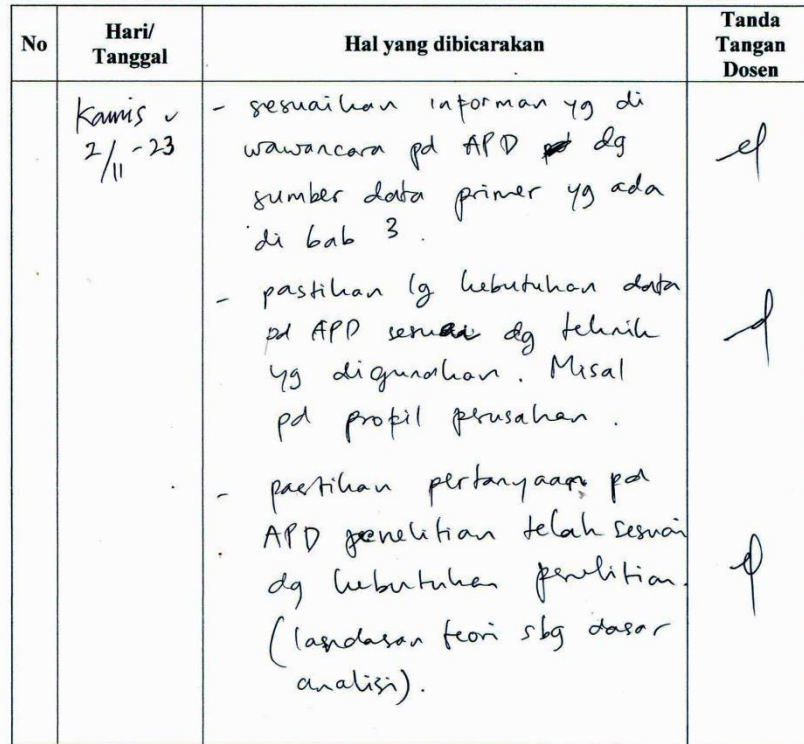 No
Hari/
Tanggal
Hal yang dibicarakan
Tanda
Tangan
Dosen
Kamis
2/11-23
- sesuaikan informan yg di
wawancara pd APD dg
sumber data primer yg ada
di bab 3.
- pastikan lg kebutuhan data
pd APD sesuai dg teknik
yg digunakan. Misal
pd profil perusahan.
- pastikan pertanyaan pd
APD penelitian telah sesuai
dg kebutuhan penelitian.
(landasan teori sbg dasar
analisi).